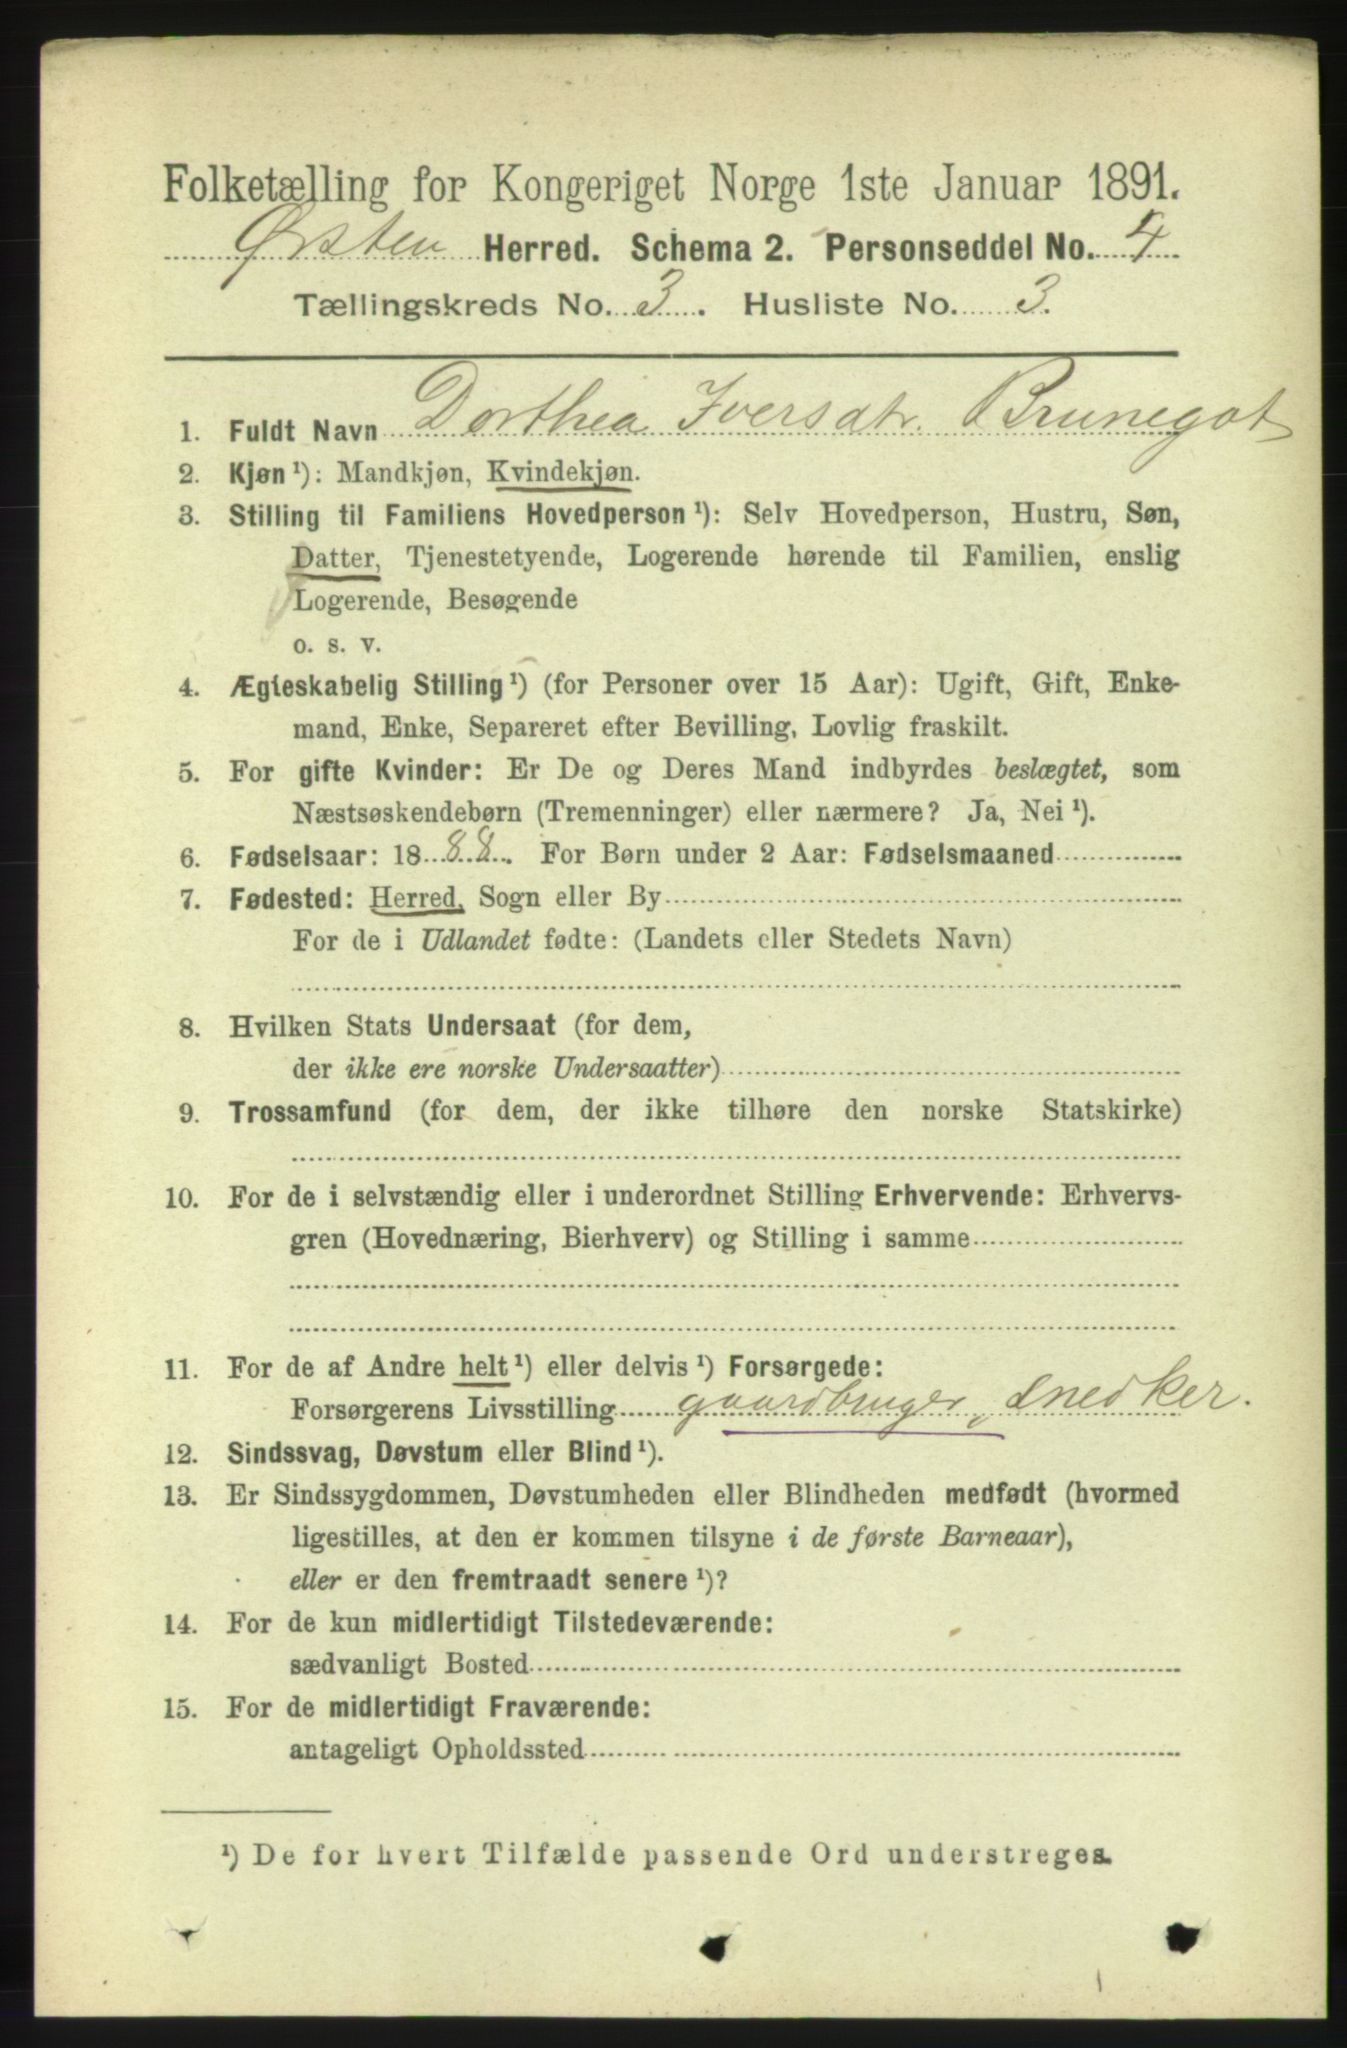 Folketælling for Kongeriget Norge 1ste Januar 1891.
Ørsten Herred. Schema 2. Personseddel No. 4
Tællingskreds No. 3. Husliste No. 3.
1. Fuldt Navn Dorthea Iversdtr. Brunegot
2. Kjøn ¹): Mandkjøn, Kvindekjøn.
3. Stilling til Familiens Hovedperson ¹): Selv Hovedperson, Hustru, Søn,
Datter, Tjenestetyende, Logerende hørende til Familien, enslig
Logerende, Besøgende
o. s. v.
4. Ægteskabelig Stilling ¹) (for Personer over 15 Aar): Ugift, Gift, Enke-
mand, Enke, Separeret efter Bevilling, Lovlig fraskilt.
5. For gifte Kvinder: Er De og Deres Mand indbyrdes beslægtet, som
Næstsøskendebørn (Tremenninger) eller nærmere? Ja, Nei ¹).
6. Fødselsaar: 18 88. For Børn under 2 Aar: Fødselsmaaned
7. Fødested: Herred, Sogn eller By
For de i Udlandet fødte: (Landets eller Stedets Navn)
8. Hvilken Stats Undersaat (for dem,
der ikke ere norske Undersaatter)
9. Trossamfund (for dem, der ikke tilhøre den norske Statskirke)
10. For de i selvstændig eller i underordnet Stilling Erhvervende: Erhvervs-
gren (Hovednæring, Bierhverv) og Stilling i samme
11. For de af Andre helt ¹) eller delvis ¹) Forsørgede:
Forsørgerens Livsstilling gaardbruger, snedker.
12. Sindssvag, Døvstum eller Blind ¹).
13. Er Sindssygdommen, Døvstumheden eller Blindheden medfødt (hvormed
ligestilles, at den er kommen tilsyne i de første Barneaar),
eller er den fremtraadt senere ¹)?
14. For de kun midlertidigt Tilstedeværende:
sædvanligt Bosted
15. For de midlertidigt Fraværende:
antageligt Opholdssted
¹) De for hvert Tilfælde passende Ord understreges.